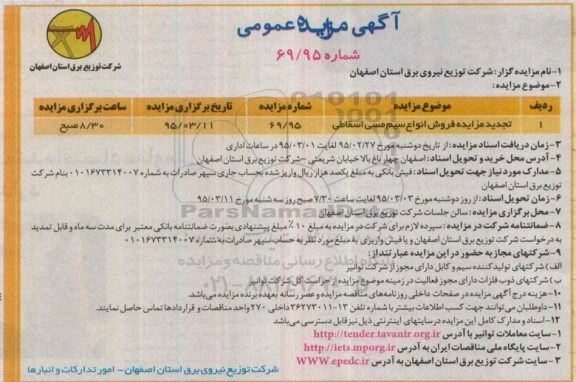 آگهی مزایده عمومی
شماره ۶۹/۹۵
شرکت توزیع برق استان اصفهان
۱-نام مزایده گزار: شرکت توزیع نیروی برق استان اصفهان
۲-موضوع مزایده:
ردیف موضوع مزایده شماره مزایده تاریخ برگزاری مزایده ساعت برگزاری مزایده
۱ تجدید مزایده فروش انواع سیم مسی اسقاطی ۶۹/۹۵ ۹۵/۰۳/۱۱ ۸/۳۰ صبح
۳- زمان دریافت اسناد مزایده: از تاریخ دوشنبه مورخ ۹۵/۰۲/۲۷ لغایت ۹۵/۰۳/۰۱ در ساعات اداری
۴- آدرس محل خرید و تحویل اسناد: اصفهان چهارباغ بالا خیابان شریعتی -شرکت توزیع برق استان اصفهان
۵- مدارک مورد نیاز جهت تحویل اسناد: فیش بانکی به مبلغ یکصد هزار ریال واریز شده بحساب جاری سپهر صادرات به شماره ۰۱۰۱۶۷۳۳۱۴۰۰۷ بنام شرکت
توزیع برق استان اصفهان
۶- زمان تحویل اسناد: از روز دوشنبه مورخ ۹۵/۰۳/۰۳ لغایت ساعت ۷/۳۰ صبح روز سه شنبه مورخ ۹۵/۰۳/۱۱
۷- محل برگزاری مزایده: سالن جلسات شرکت توزیع برق استان اصفهان
۸- ضمانتنامه شرکت در مزایده: سپرده لازم برای شرکت در مزایده به مبلغ ۱۰٪ مبلغ پیشنهادی بصورت ضمانتنامه بانکی معتبر برای مدت سه ماه و قابل تمدید
به درخواست شرکت توزیع برق استان اصفهان و یا فیش واریزی به مبلغ مورد نظر به حساب سپهر صادرات به شماره ۰۱۰۱۶۷۳۳۱۴۰۰۷
۹- شرکتهای مجاز به حضور در این مزایده عبارتند از:
الف) شرکتهای تولید کننده سیم و کابل دارای مجوز از شرکت توانیر
ب) شرکتهای ذوب فلزات دارای مجوز فعالیت در زمینه موضوع مزایده از حراست کل شرکت توانیر
۱۰- هزینه درج آگهی مزایده در صفحات داخلی روزنامه‌های مناقصه مزایده و عصر رسانه بعهده برنده مزایده می‌باشد.
۱۱- داوطلبان می‌توانند جهت کسب اطلاعات بیشتر با شماره تلفن ۱۳-۳۶۲۷۳۰۱۱ داخلی ۲۷۰ واحد مناقصات و قراردادها تماس حاصل نمایند.
۱۲- اسناد و مدارک کامل این مزایده در سایتهای اینترنتی ذیل نیز قابل دسترسی می‌باشد
۱- سایت معاملات توانیر با آدرس http://tender.tavanir.org.ir
۲- سایت پایگاه ملی مناقصات ایران به آدرس http://iets.mporg.ir
۳- سایت شرکت توزیع برق استان اصفهان به آدرس WWW.epedc.ir
شرکت توزیع نیروی برق استان اصفهان - امور تدارکات و انبارها